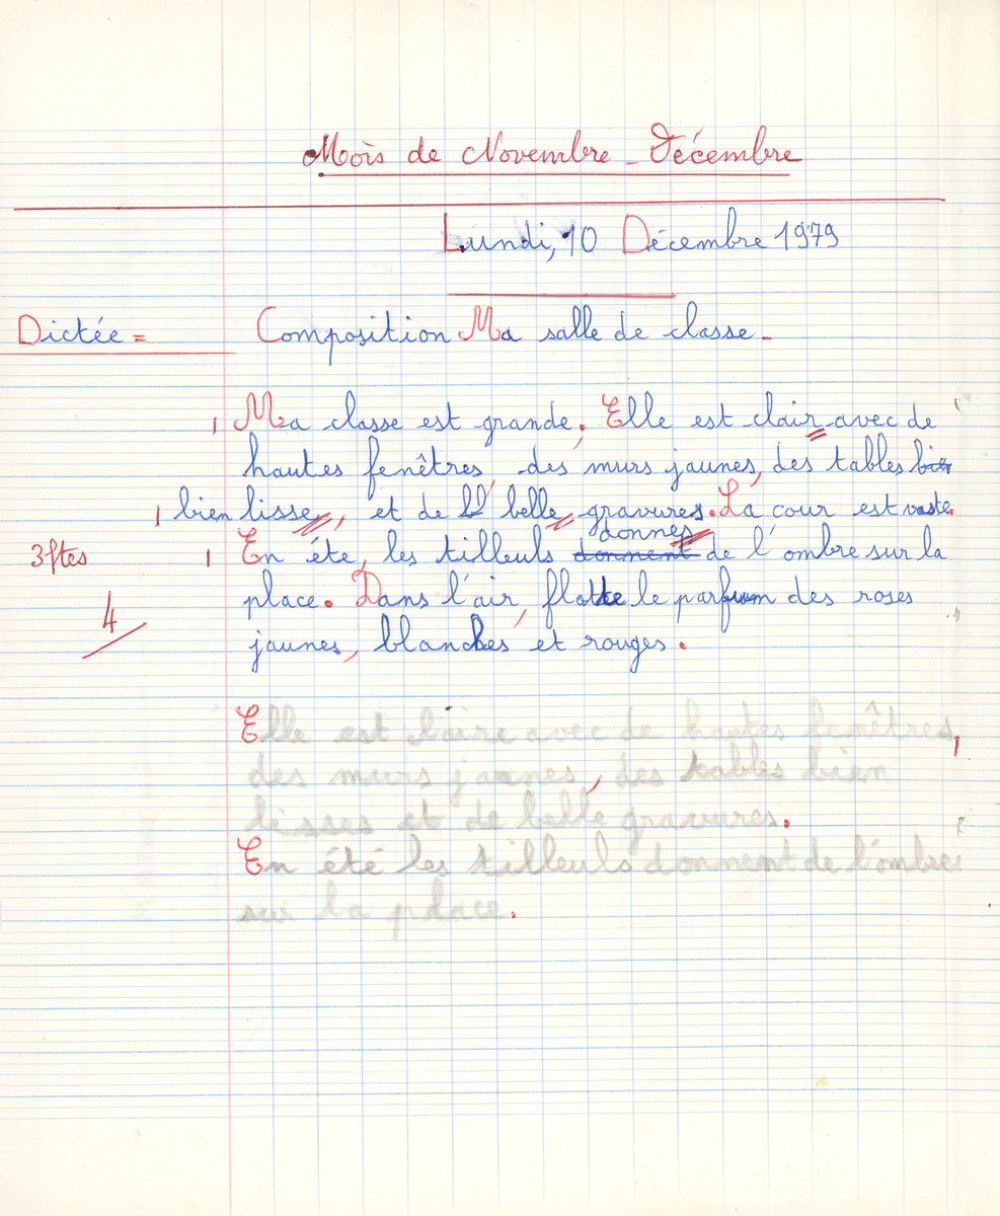 Mois de Novembre - Décembre
Lundi, 10 Décembre 1979
Dictée = Composition Ma salle de classe -
Ma classe est grande. Elle est clair avec de
hautes fenêtres, des murs jaunes, des tables bien
bien lisse, et de bl belle gravures. La cour est vaste.
donnes
3 ftes En éte, les tilleuls donnent de l'ombre sur la
place. Dans l'air, flotte le parfum des roses
4
jaunes, blanches et rouges.
Elle est claire avec de hautes fenêtres,
des murs jaunes, des tables bien
lisses et de belle gravures.
En été les tilleuls donnent de l'ombre
sur la place.